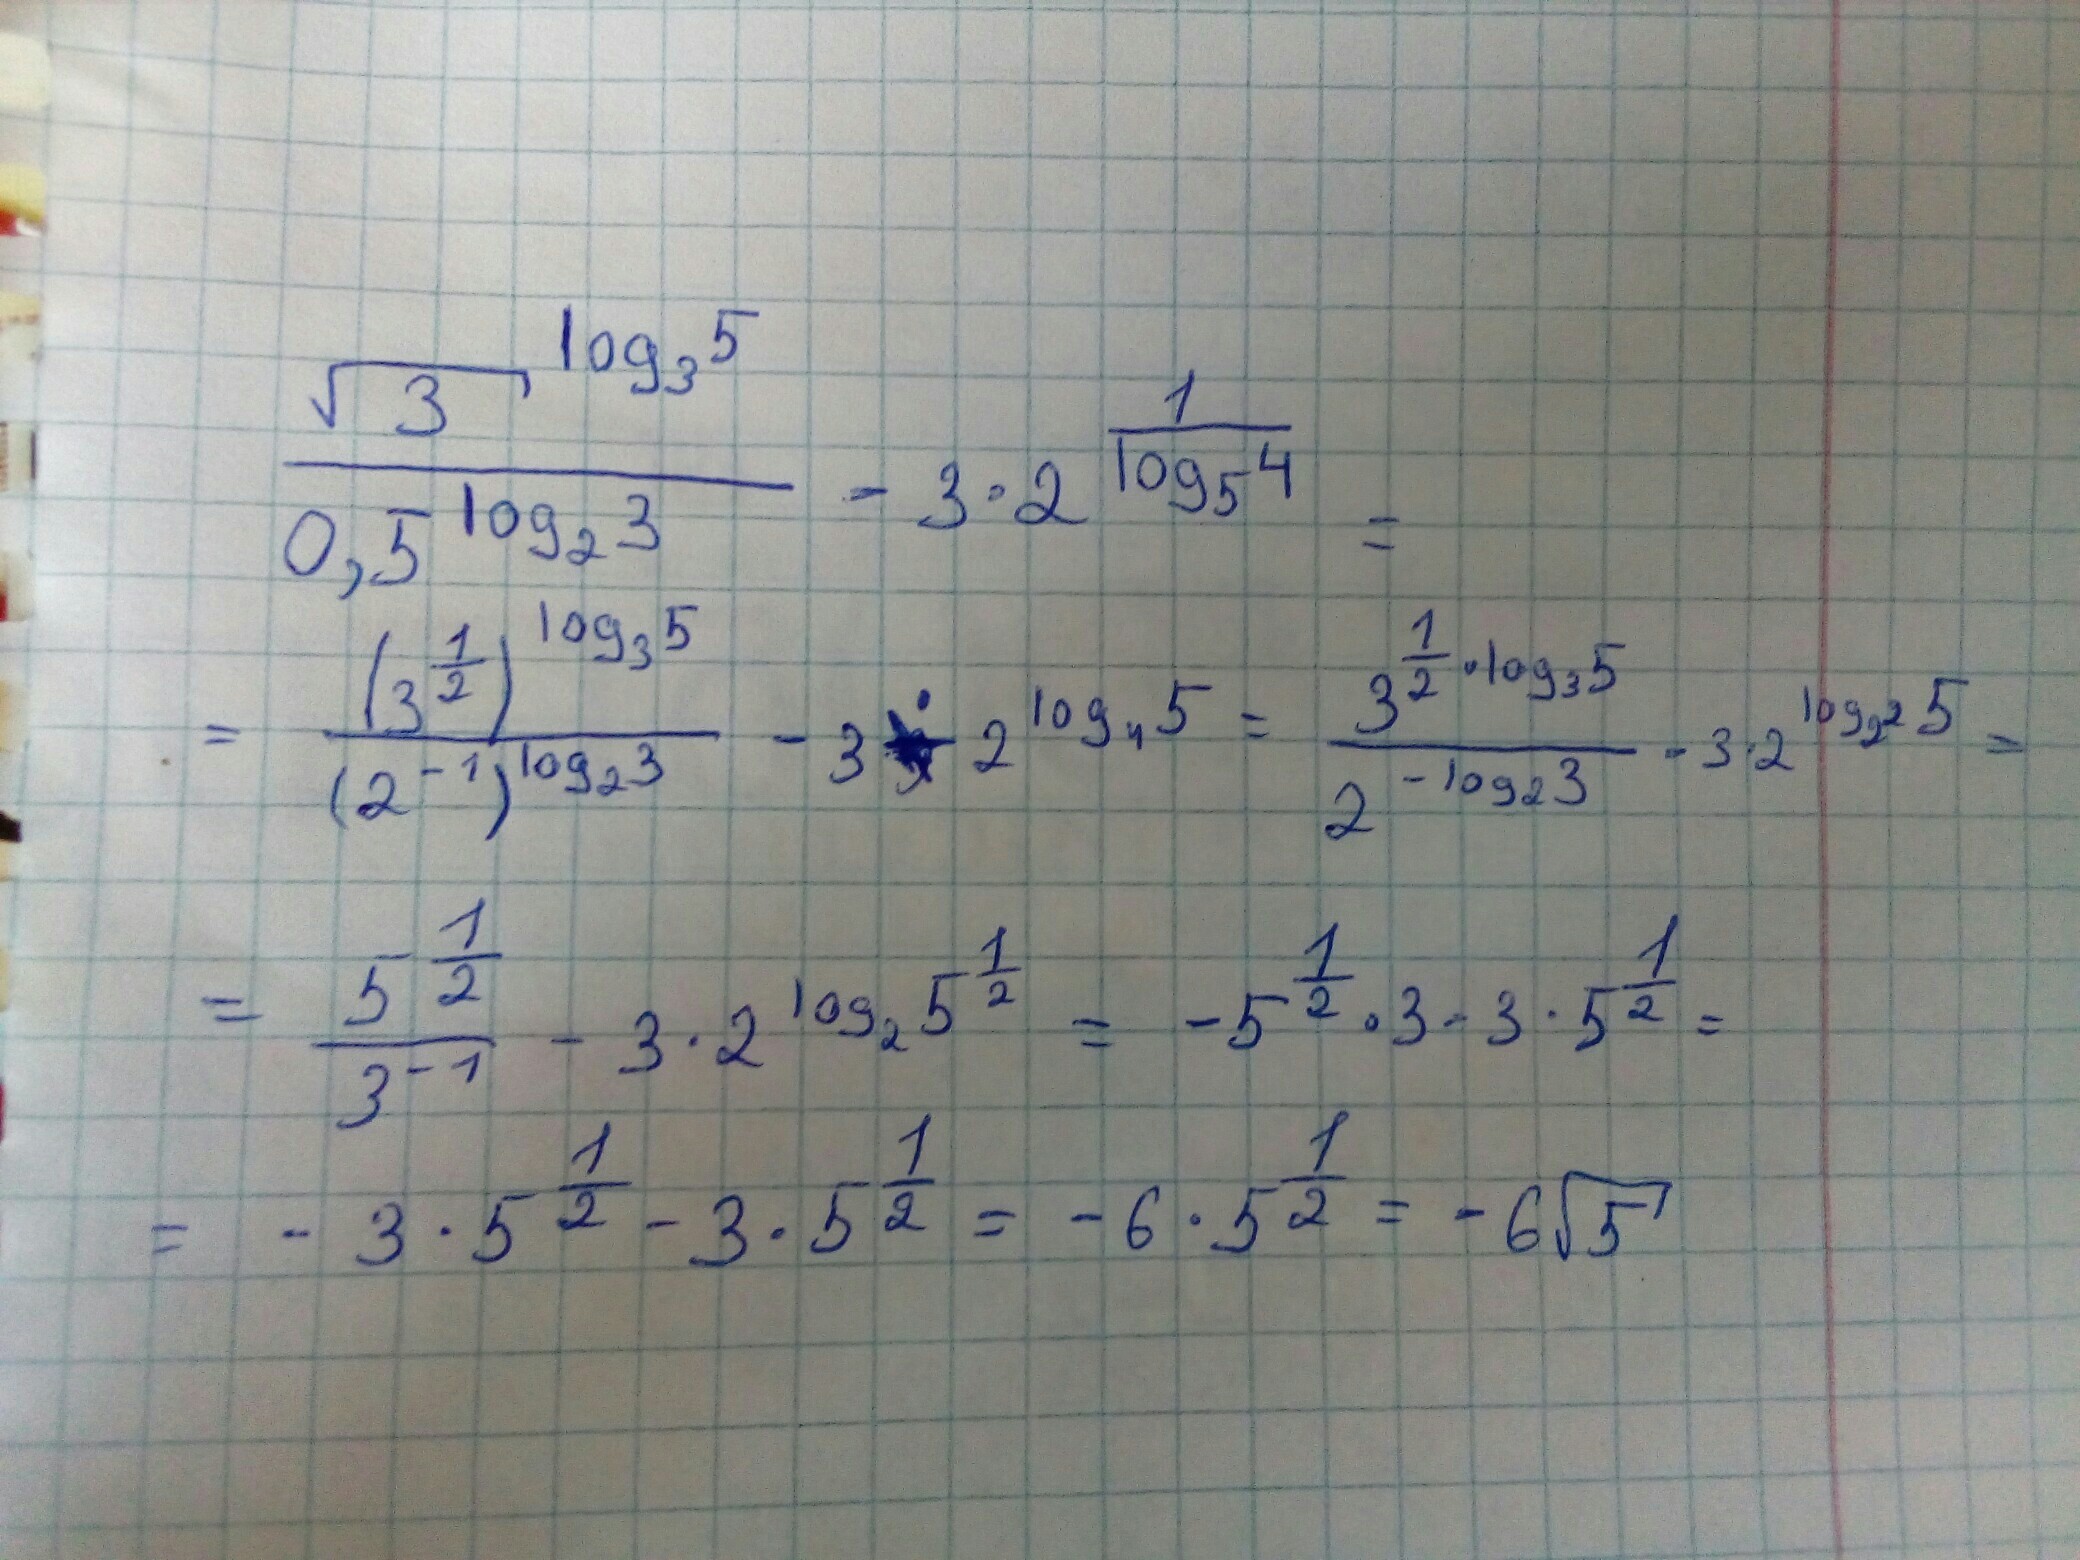 √3^(log₃5) / 0,5^(log₂3) - 3·2^(1/log₅4) =
= (3^(1/2))^(log₃5) / (2^(-1))^(log₂3) - 3·2^(log₄5) = 3^(1/2·log₃5) / 2^(-log₂3) - 3·2^(log_(2²)5) =
= 5^(1/2) / 3^(-1) - 3·2^(log₂5^(1/2)) = -5^(1/2)·3 - 3·5^(1/2) =
= -3·5^(1/2) - 3·5^(1/2) = -6·5^(1/2) = -6√5